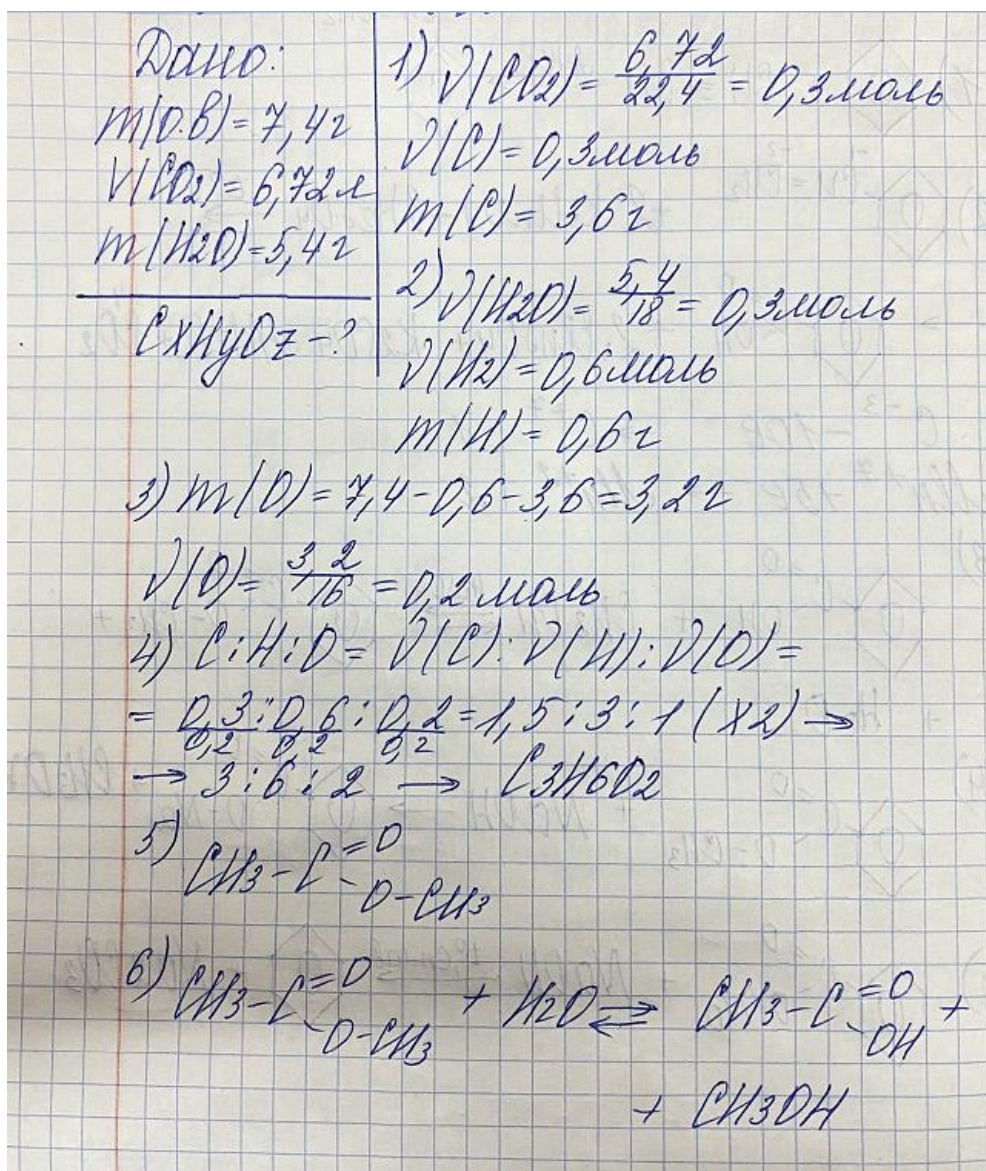 Дано:
m(О.В)=7,4г
V(CO2)=6,72л
m(H2O)=5,4г
CxHyOz-?
1) ν(CO2)= 6,72/22,4 = 0,3моль
ν(C)=0,3моль
m(C)=3,6г
2) ν(H2O)= 5,4/18 = 0,3моль
ν(H2)=0,6моль
m(H)=0,6г
3) m(O)=7,4-0,6-3,6=3,2г
ν(O)= 3,2/16 =0,2моль
4) C:H:O= ν(C):ν(H):ν(O)=
= 0,3/0,2 : 0,6/0,2 : 0,2/0,2 =1,5:3:1 (x2) →
→ 3:6:2 → C3H6O2
5) CH3-C=O
-O-CH3
6) CH3-C=O + H2O ⇄ CH3-C=O +
-O-CH3 -OH
+ CH3OH